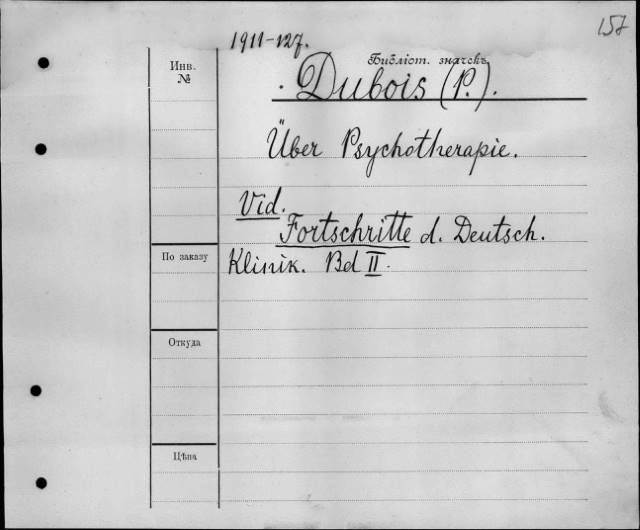 157
1911-127.
Инв.
№
Библіот. значекъ
Dubois (P.).
Über Psychotherapie.
Vid.
Fortschritte d. Deutsch.
По заказу
Klinik. Bd II.
Откуда
Цѣна